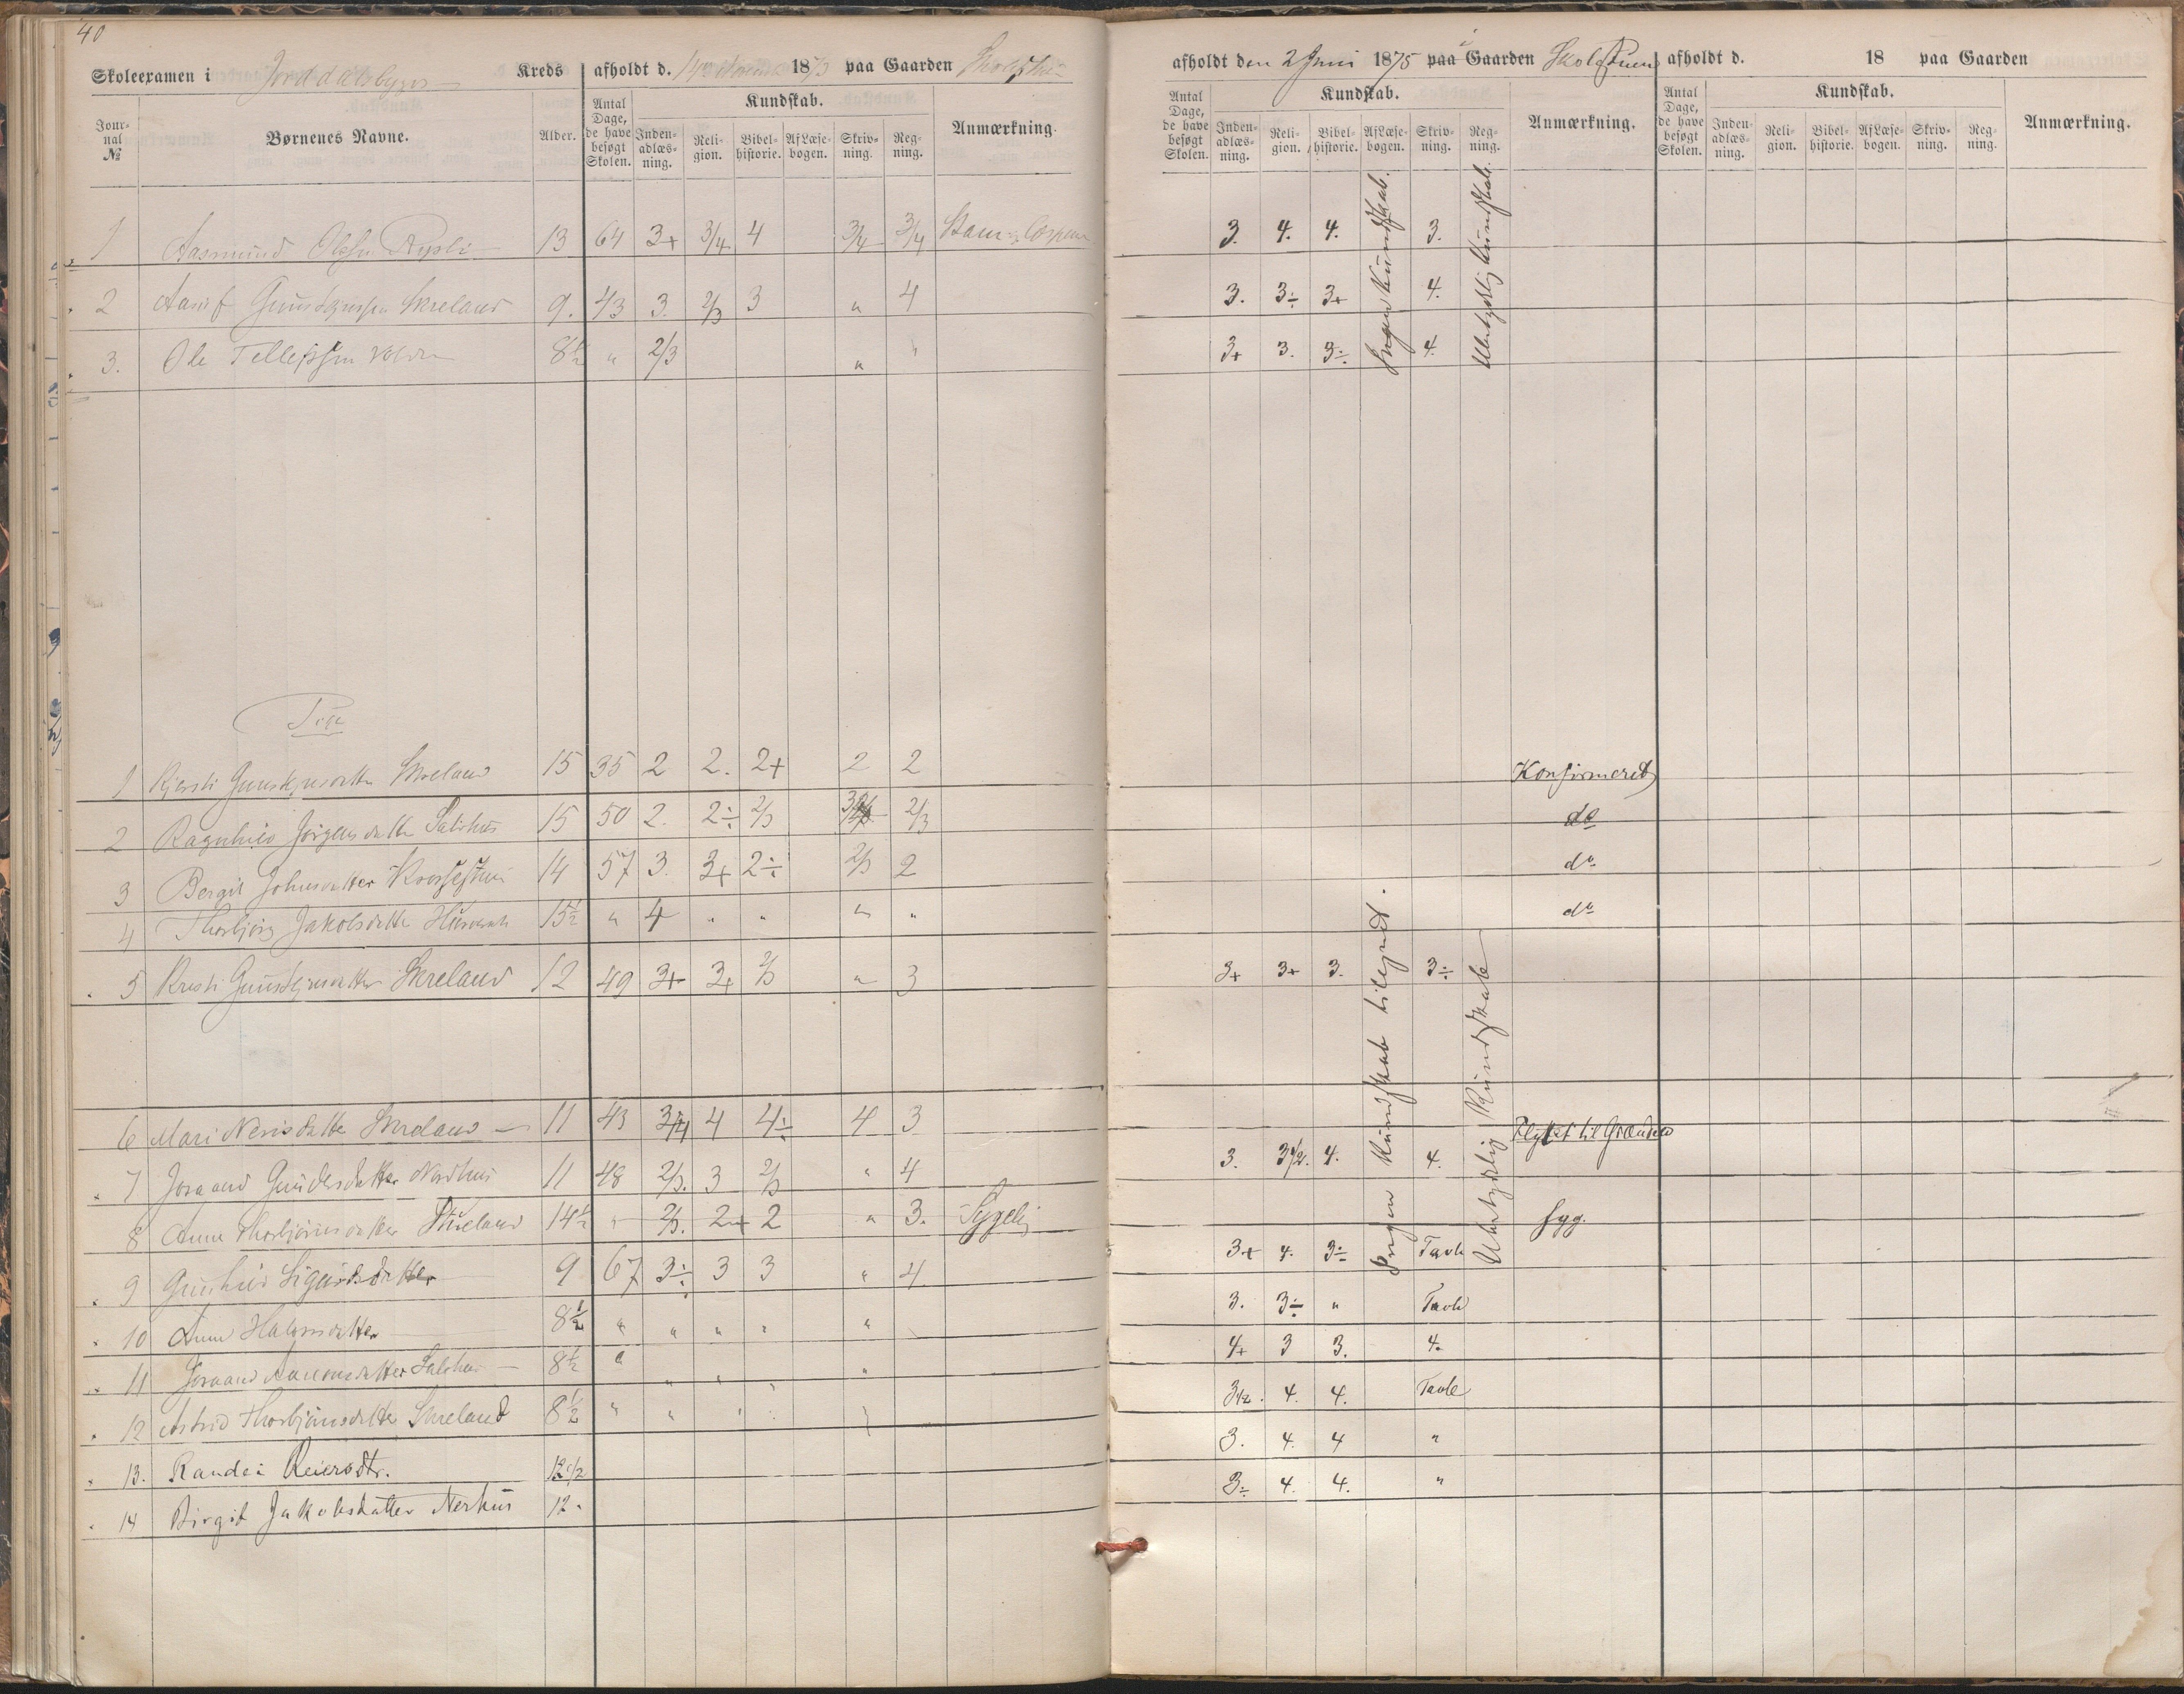 40
Skoleexamen i Jorddalsbygden Kreds afholdt d. 14 Novemb 1873 paa Gaarden Skolestuen
Journal № Børnenes Navne. Alder. Antal Dage, de have besøgt Skolen. Kundskab. Indenadlæsning. Religion. Bibelhistorie. Af Læsebogen. Skrivning. Regning. Anmærkning.
1 Aasmund Olsen 13 64 3+ 3/4 4 3/4 3/4
2 Gunstejnsen Skreland 9. 43 3. 2/3 3 " 4
3. Ole Tellefssen 8½ " 2/3 " "
Piger
1 Kjersti Gunstejnsdatter Skreland 15 35 2 2. 2+ 2 2
2 Ragnhild Jørgensdatter Salthus 15 50 2. 2÷ 2/3 2/3
3 Bergit Johnsdatter 14 57 3. 3+ 2÷ 2/3 2
4 Thorbjørg Jakobsdatter 15½ " 4 " " " "
5 Kristi Gunstejnsdatter Skreland 12 49 3+ 3+ 2/3 " 3
6 Mari Nerisdatter Skreland 11 43 3/4 4 4÷ 4 3
7 Joraand Gundersdatter Nordhus 11 48 2/3. 3 2/3 " 4
8 Anne Thorbjørnsdatter Skreland 14½ " 2/3. 2+ 2 " 3. Sygelig
9 Gunhild Sigurdsdatter 9 67 3÷ 3 3 " 4
10 Anne Halvorsdatter 8½ " " " " "
11 Joraand Aanonsdatter Salthus 8½ " " " " "
12 Astrid Thorbjørnsdatter Skreland 8½ " " " "
13. Randei Reiersdtr. 12 1/2
14 Birgit Jakobsdatter Nerhus 12 "
afholdt den 2 Juni 1875 paa i Gaarden Skolestuen
Antal Dage, de have besøgt Skolen. Kundskab. Indenadlæsning. Religion. Bibelhistorie. Af Læsebogen. Skrivning. Regning. Anmærkning.
3. 4. 4. 3.
3. 3÷ 3+ 4.
3+ 3. 3÷ 4.
Ingen Kundskab.
Ubetydelig Kundskab.
Konfirmeret
do
do
do
3+ 3+ 3. 3÷
Flyttet til
3. 3½. 4. 4.
syg.
3+ 4. 3÷ Tavle
3. 3÷ " Tavle
4+ 3 3. 4.
3½. 4. 4. Tavle
3. 4. 4 "
3÷ 4. 4. "
Ingen Kundskab tilegnet.
Ubetydelig Kundskab
afholdt d. 18 paa Gaarden
Antal Dage, de have besøgt Skolen. Kundskab. Indenadlæsning. Religion. Bibelhistorie. Af Læsebogen. Skrivning. Regning. Anmærkning.